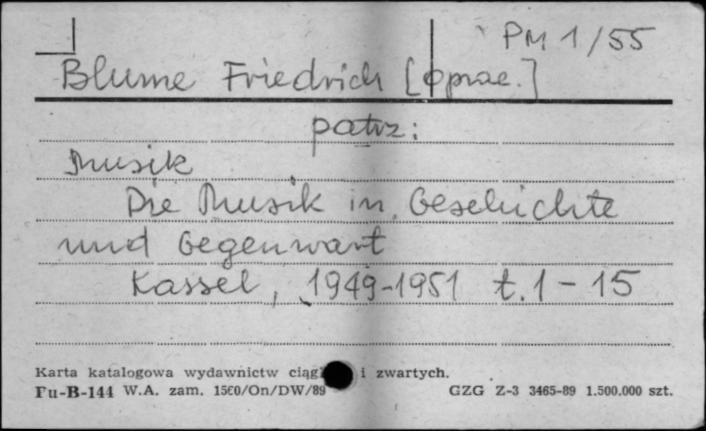 PM 1/55
Blume Friedrich [oprac.]
patrz:
Musik
Die Musik in Geschichte
und Gegenwart
Kassel, 1949-1951 t. 1 - 15
Karta katalogowa wydawnictw ciągł i zwartych.
Fu-B-144 W.A. zam. 1500/On/DW/89 GZG Z-3 3465-89 1.500.000 szt.